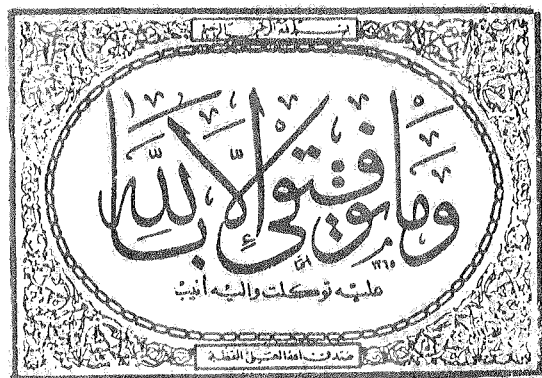 بسم الله الرحمن الرحيم
وما توفيقي إلا بالله
١٣٦٥
عليه توكلت وإليه أنيب
صدق الله العظيم